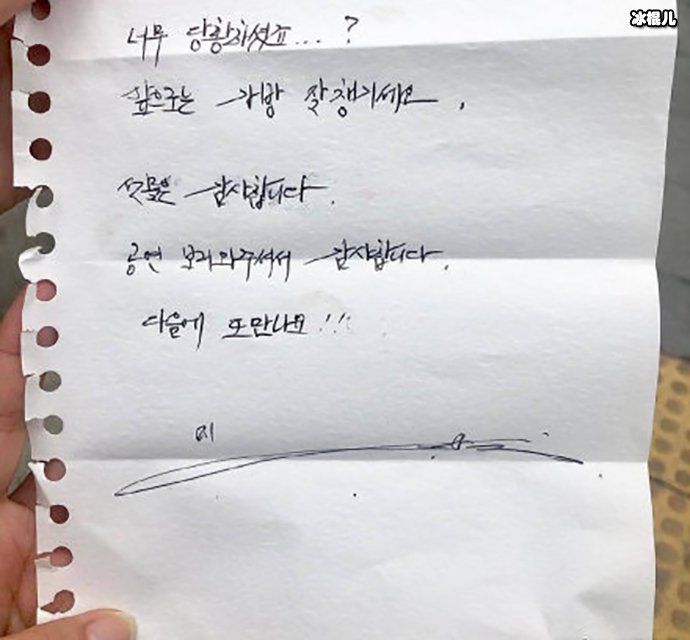 冰棍儿
너무 당황하셨죠....?
앞으로는 가방 잘 챙기세요.
선물은 감사합니다.
공연 보러와주셔서 감사합니다.
다음에 또만나요!!!